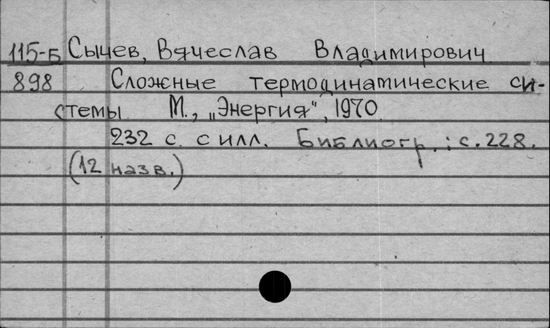 115-Б Сычев, Вячеслав Владимирович
898 Сложные термодинатические си-
стемы М., „Энергия", 1970
232 с. с илл. Библиогр.: с. 228.
(12 назв.)